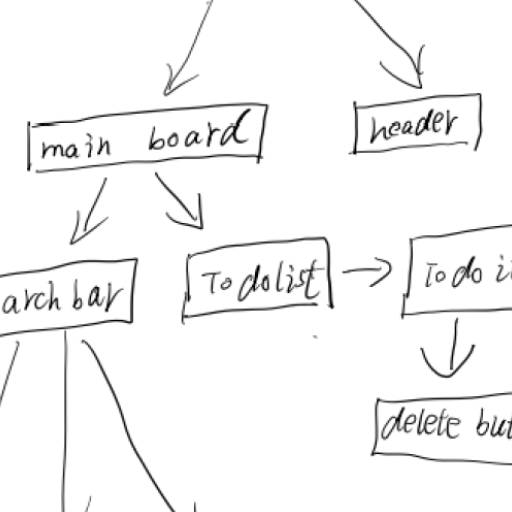 main board
header
arch bar
To do list
To do i
delete but